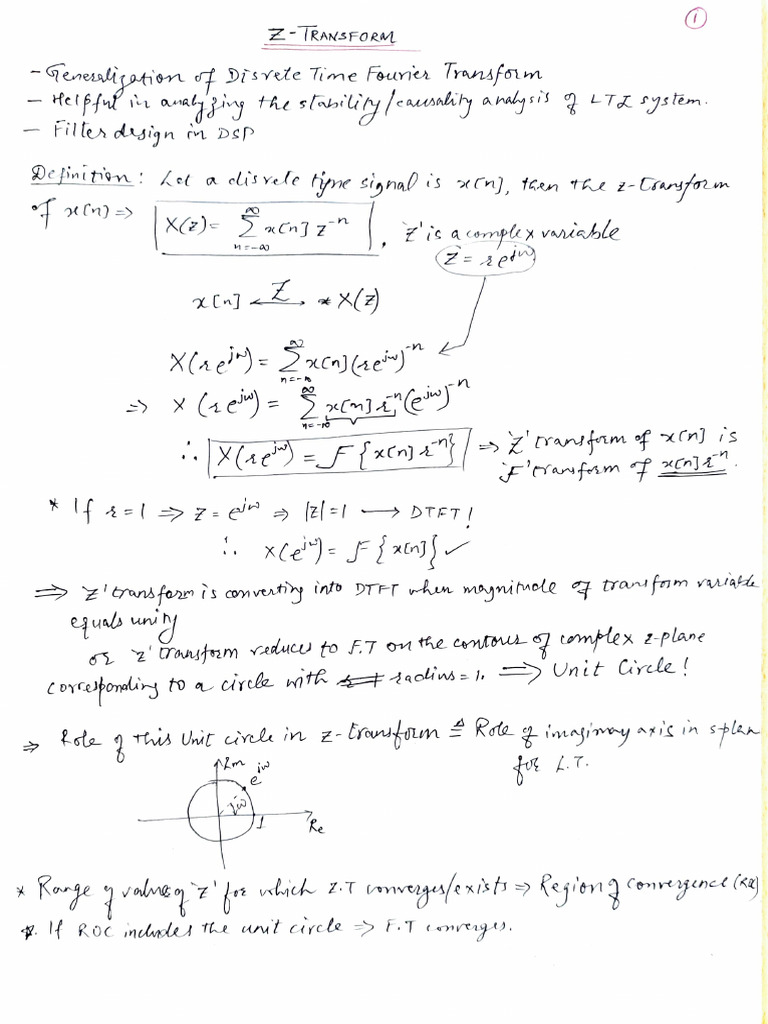 1
Z-TRANSFORM
- Generalization of Disrete Time Fourier Transform
- Helpful in analyzing the stability/causality analysis of LTI system.
- Filter design in DSP
Definition: Let a disrete time signal is x[n], then the z-transform
of x(n) ⇒ X(z) = ∑_{n=-∞}^{∞} x[n] z^{-n} , 'z' is a complex variable
z = re^{jω}
x[n] ⟷^Z X(z)
X(re^{jω}) = ∑_{n=-∞}^{∞} x[n](re^{jω})^{-n}
⇒ X(re^{jω}) = ∑_{n=-∞}^{∞} x[n] r^{-n} (e^{jω})^{-n}
∴ X(re^{jω}) = F{x[n] r^{-n}} ⇒ 'Z' transform of x[n] is
'F' transform of x[n] r^{-n}.
* If r=1 ⇒ z = e^{jω} ⇒ |z|=1 ⟶ DTFT!
∴ X(e^{jω}) = F{x[n]} ✓
⇒ 'z' transform is converting into DTFT when magnitude of transform variable
equals unity
or 'z' transform reduces to F.T on the contour of complex z-plane
corresponding to a circle with radius = 1. ⇒ Unit Circle!
⇒ Role of this Unit circle in z-transform ≜ Role of imaginary axis in splan
for L.T.
Im
e^{jω}
jω
1
Re
* Range of values of 'z' for which Z.T converges/exists ⇒ Region of convergence (ROC)
*. If ROC includes the unit circle ⇒ F.T converges.